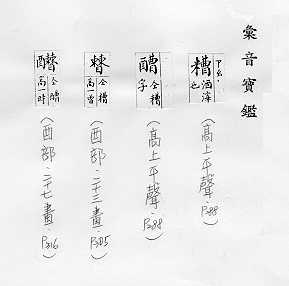 彙音寶鑑
糟 酒滓也
(高上平聲．P.88)
醩 仝糟字
(高上平聲．P.88)
仝糟 高一曹
(酉部．二十三畫．P.315)
仝醩 高一時
(酉部．二十七畫．P.316)